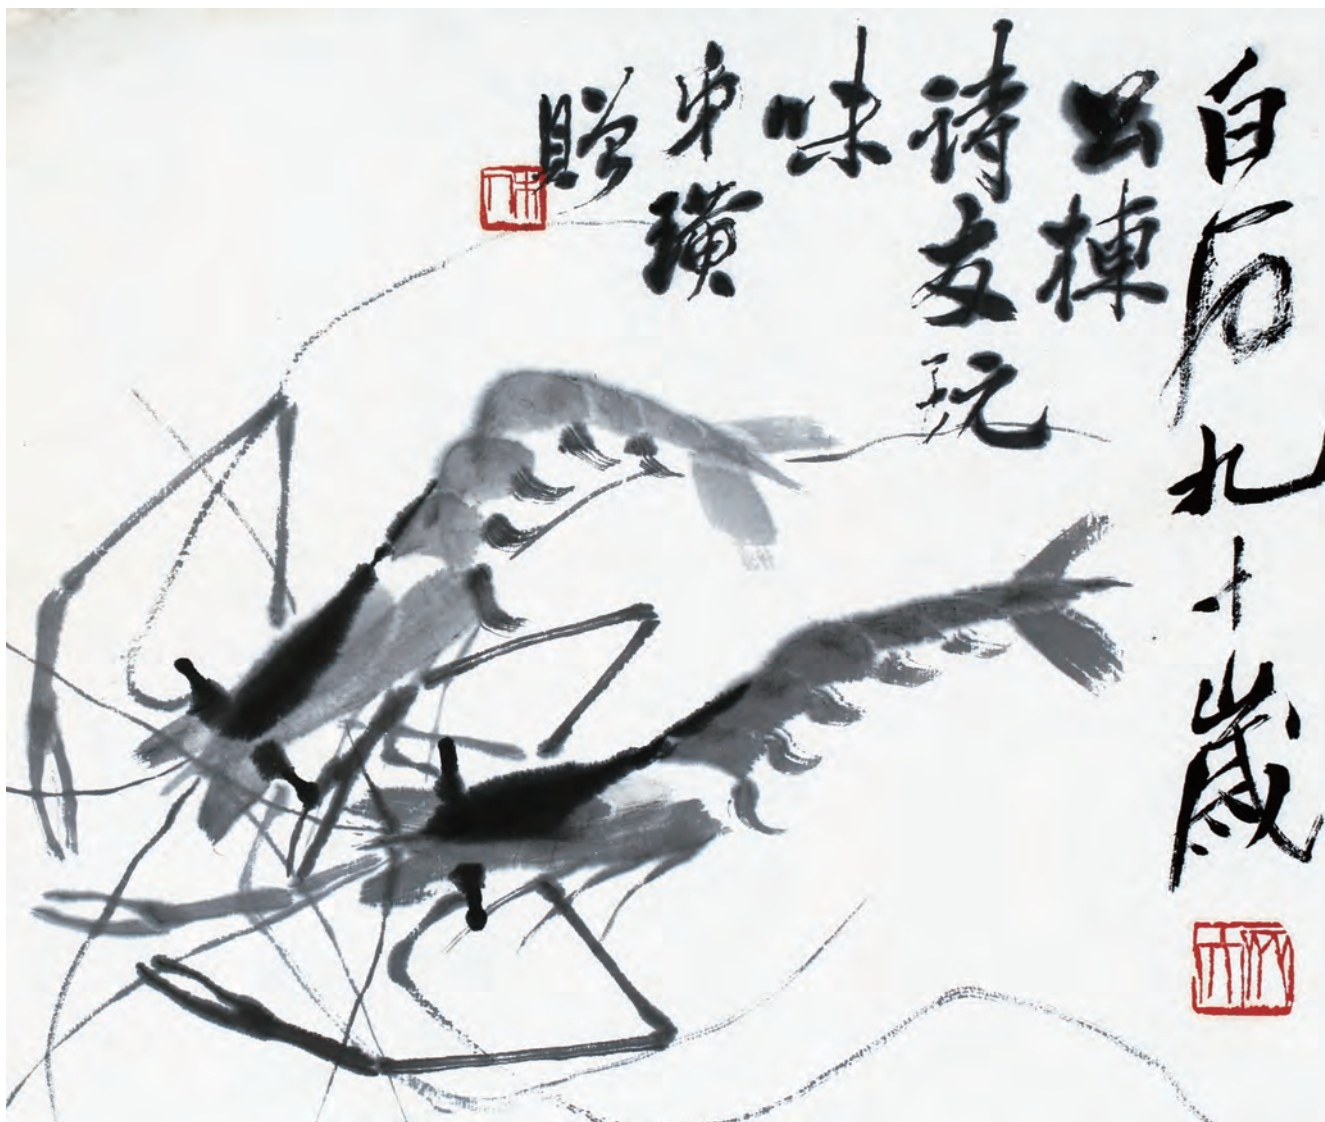 白石九十歲
公棟
詩友玩
味
弟璜
贈